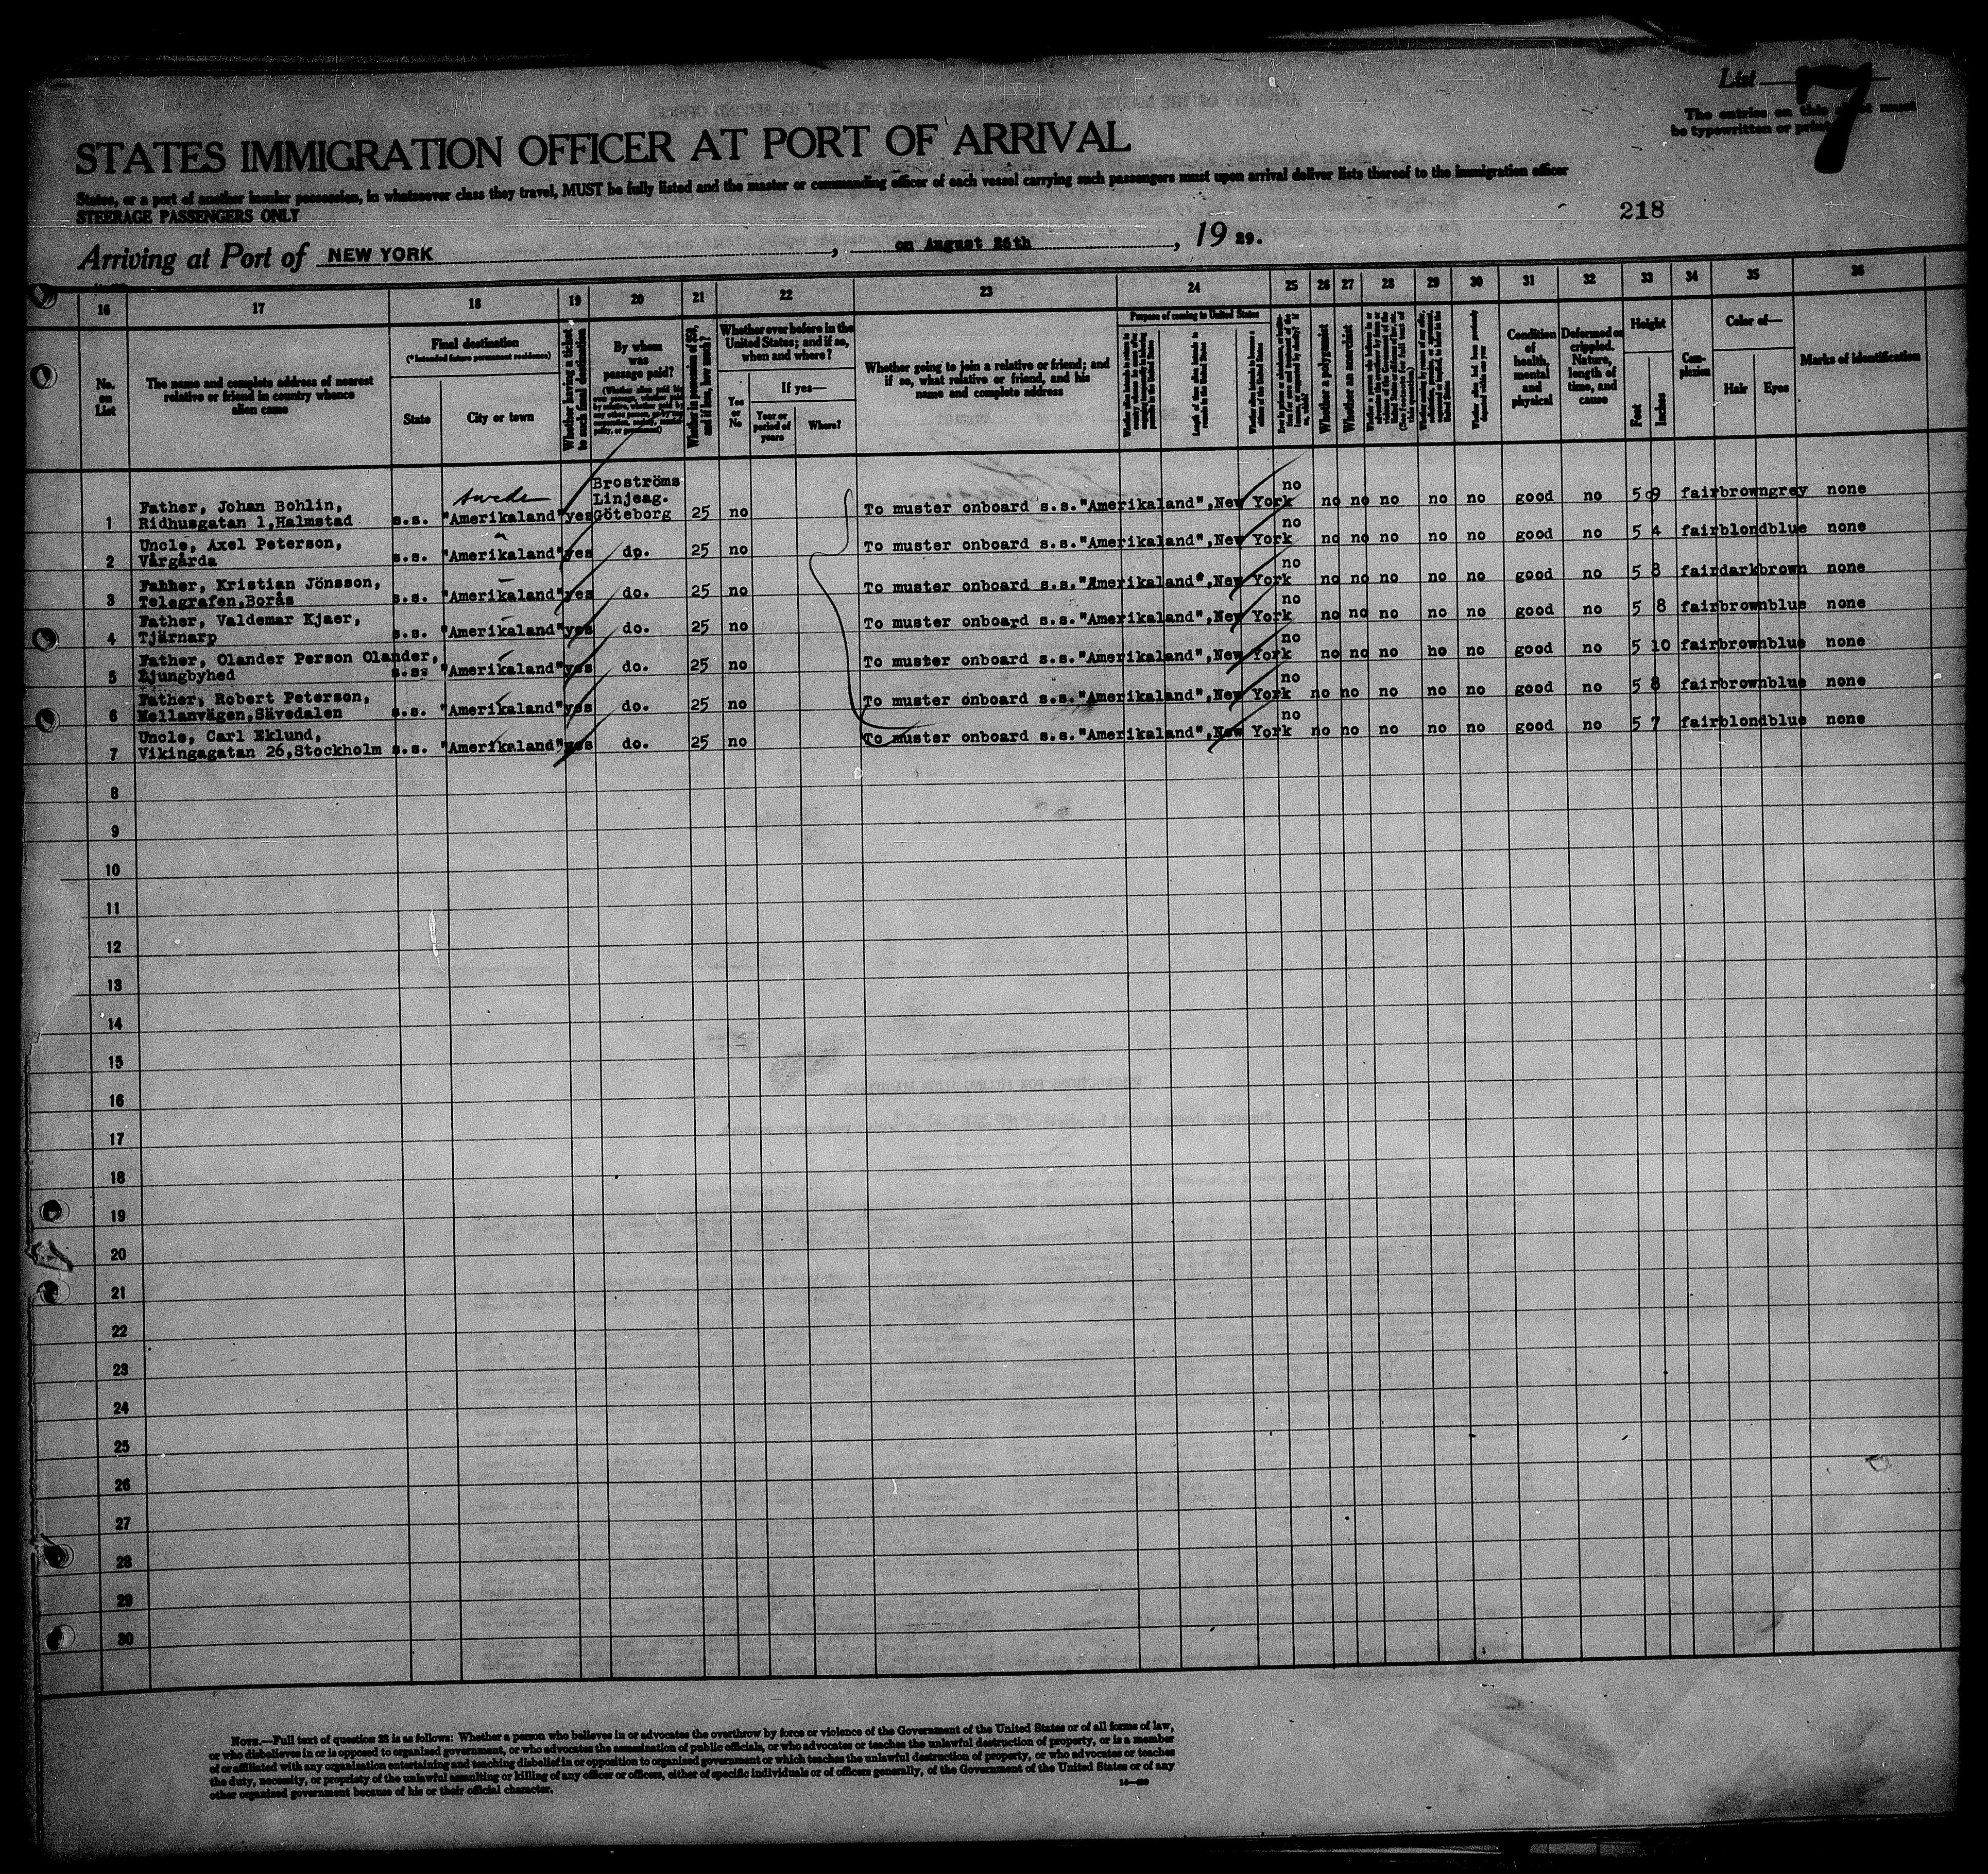 List 7
The entries on this sheet must
be typewritten or printed
STATES IMMIGRATION OFFICER AT PORT OF ARRIVAL
States, or a port of another insular possession, in whatsoever class they travel, MUST be fully listed and the master or commanding officer of each vessel carrying such passengers must upon arrival deliver lists thereof to the immigration officer
STEERAGE PASSENGERS ONLY
218
Arriving at Port of NEW YORK, on August 26th, 1929.
16 17 18 19 20 21 22 23 24 25 26 27 28 29 30 31 32 33 34 35 36
No. on List
The name and complete address of nearest relative or friend in country whence alien came
Final destination
(*Intended future permanent residence)
State
City or town
Whether having a ticket to such final destination
By whom was passage paid?
Whether in possession of $50, and if less, how much?
Whether ever before in the United States; and if so, when and where?
Yes or No
If yes—
Year or period of years
Where?
Whether going to join a relative or friend; and if so, what relative or friend, and his name and complete address
Purpose of coming to United States
Length of time alien intends to remain in the United States
Whether a polygamist
Whether an anarchist
Condition of health, mental and physical
Deformed or crippled. Nature, length of time, and cause
Height
Feet
Inches
Complexion
Color of—
Hair
Eyes
Marks of identification
Sweden
Broströms
Linjeag.
1 Father, Johan Bohlin, Ridhusgatan 1,Halmstad s.s. "Amerikaland" yes Göteborg 25 no To muster onboard s.s."Amerikaland",New York no no no no no no good no 5 9 fair brown grey none
2 Uncle, Axel Peterson, Vårgårda s.s. "Amerikaland" yes do. 25 no To muster onboard s.s."Amerikaland",New York no no no no no no good no 5 4 fair blond blue none
3 Fahher, Kristian Jönsson, Telegrafen,Borås s.s. "Amerikaland" yes do. 25 no To muster onboard s.s."Amerikaland",New York no no no no no no good no 5 8 fair dark brown none
4 Father, Valdemar Kjaer, Tjärnarp s.s. "Amerikaland" yes do. 25 no To muster onboard s.s."Amerikaland",New York no no no no no no good no 5 8 fair brown blue none
5 Father, Olander Person Olander, Ljungbyhed s.s. "Amerikaland" yes do. 25 no To muster onboard s.s."Amerikaland",New York no no no no ho no good no 5 10 fair brown blue none
6 Father, Robert Peterson, Mellanvägen,Sävedalen s.s. "Amerikaland" yes do. 25 no To muster onboard s.s."Amerikaland",New York no no no no no no good no 5 8 fair brown blue none
7 Uncle, Carl Eklund, Vikingagatan 26,Stockholm s.s. "Amerikaland" yes do. 25 no To muster onboard s.s."Amerikaland",New York no no no no no no good no 5 7 fair blond blue none
8
9
10
11
12
13
14
15
16
17
18
19
20
21
22
23
24
25
26
27
28
29
30
NOTE.—Full text of question 28 is as follows: Whether a person who believes in or advocates the overthrow by force or violence of the Government of the United States or of all forms of law,
or who disbelieves in or is opposed to organized government, or who advocates the assassination of public officials, or who advocates or teaches the unlawful destruction of property, or is a member
of or affiliated with any organization entertaining and teaching disbelief in or opposition to organized government or which teaches the unlawful destruction of property, or who advocates or teaches
the duty, necessity, or propriety of the unlawful assaulting or killing of any officer or officers, either of specific individuals or of officers generally, of the Government of the United States or of any
other organized government because of his or their official character.